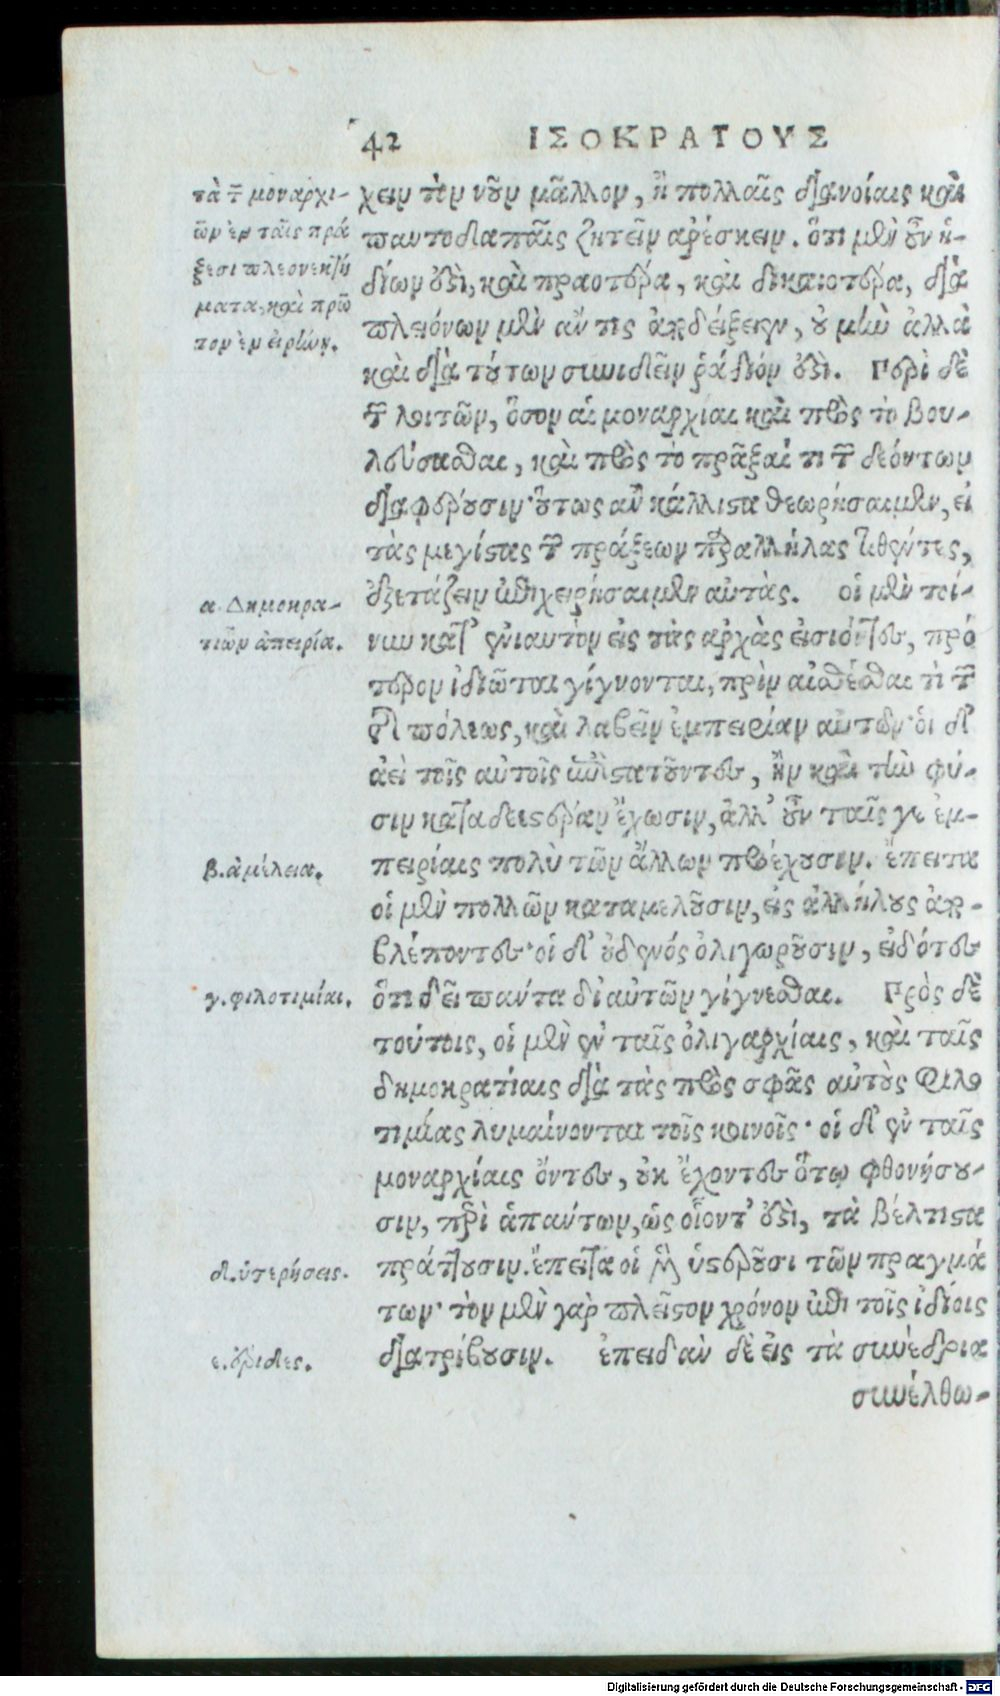 42 ΙΣΟΚΡΑΤΟΥΣ
τὰ τ͂ μοναρχι-
ῶν ἐν ταῖς πρά
ξεσι πλεονεκτή
ματα, καὶ πρῶ
τον ἐν εἰρήνῃ.
χειν τὸν νοῦν μᾶλλον, ἢ πολλαῖς διανοίαις καὶ
παντοδαπαῖς ζητεῖν ἀρέσκειν. ὅτι μὲν οὖν ἡ-
δίων ἐστὶ, καὶ πραοτέρα, καὶ δικαιοτέρα, διὰ
πλειόνων μὲν ἄν τις ἀποδείξειεν, οὐ μὴν ἀλλὰ
καὶ διὰ τούτων συνιδεῖν ῥάδιόν ἐστι. Περὶ δὲ
τ͂ λοιπῶν, ὅσον αἱ μοναρχίαι καὶ πρὸς τὸ βου-
λεύσασθαι, καὶ πρὸς τὸ πρᾶξαί τι τ͂ δεόντων
διαφέρουσιν· οὕτως ἂν κάλλιστα θεωρήσαιμεν, εἰ
τὰς μεγίστας τ͂ πράξεων παραλλήλας τιθέντες,
ἐξετάζειν ἐπιχειρήσαιμεν αὐτάς. οἱ μὲν τοί-
α. Δημοκρα-
τιῶν ἀπειρία.
νυν κατ' ἐνιαυτὸν εἰς τὰς ἀρχὰς εἰσιόντες, πρό
τερον ἰδιῶται γίγνονται, πρὶν αἰσθέσθαι τὶ τ͂
τῆς πόλεως, καὶ λαβεῖν ἐμπειρίαν αὐτῶν· οἱ δ'
ἀεὶ τοῖς αὐτοῖς ἐπιστατοῦντες, ἢν καὶ τὴν φύ-
σιν καταδεεστέραν ἔχωσιν, ἀλλ' οὖν ταῖς γε ἐμ-
β. ἀμέλεια.
πειρίαις πολὺ τῶν ἄλλων προέχουσιν. ἔπειτα
οἱ μὲν πολλῶν καταμελοῦσιν, εἰς ἀλλήλους ἀπο-
βλέποντες· οἱ δ' οὐδενός ὀλιγωροῦσιν, εἰδότες
γ. φιλοτιμίαι.
ὅτι δεῖ πάντα δι αὐτῶν γίγνεσθαι. Πρὸς δὲ
τούτοις, οἱ μὲν ἐν ταῖς ὀλιγαρχίαις, καὶ ταῖς
δημοκρατίαις διὰ τὰς πρὸς σφᾶς αὐτοὺς φιλο
τιμίας λυμαίνονται τοῖς κοινοῖς· οἱ δ' ἐν ταῖς
μοναρχίαις ὄντες, οὐκ ἔχοντες ὅτῳ φθονήσου-
σιν, περὶ ἁπάντων, ὡς οἷοντ' ἐστὶ, τὰ βέλτιστα
δ. ὑστερήσεις.
πράττουσιν. ἔπειτα οἱ μὲν ὑστεροῦσι τῶν πραγμά
των· τὸν μὲν γὰρ πλεῖστον χρόνον ἐπὶ τοῖς ἰδίοις
ε. ἔριδες.
διατρίβουσιν. ἐπειδὰν δὲ εἰς τὰ συνέδρια
συνέλθω-
Digitalisierung gefördert durch die Deutsche Forschungsgemeinschaft - DFG